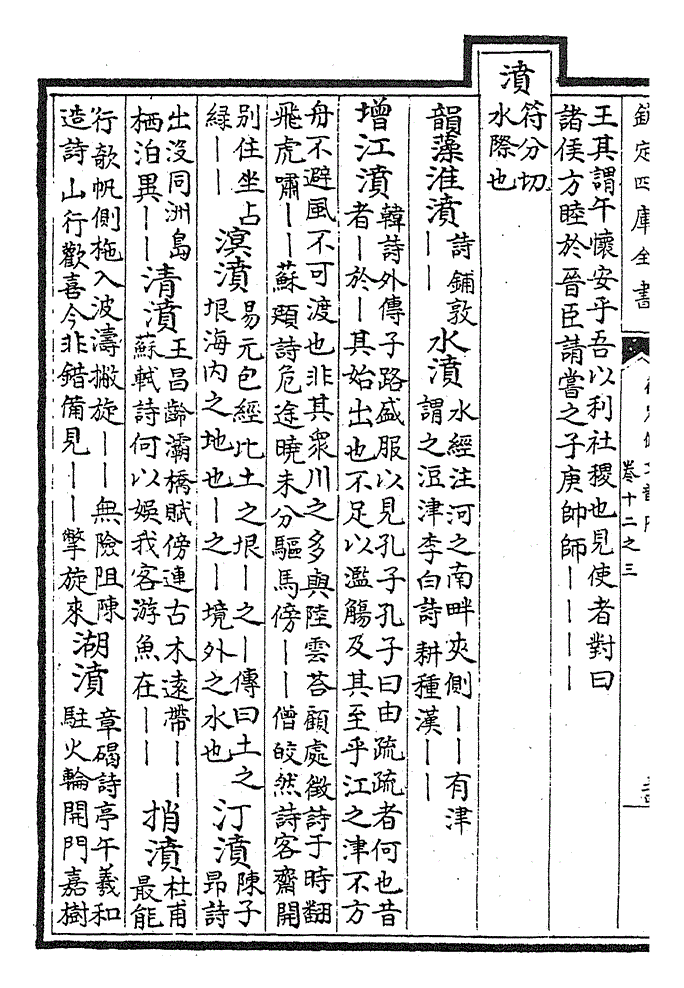 欽定四庫全書
卷十二之三
王其謂午懷安乎吾以利社稷也見使者對曰
諸侯方睦於晉臣請嘗之子庚帥師————
濆
符分切
水際也
韻藻淮濆
詩鋪敦
——
水濆
水經注河之南畔夾側——有津
謂之浢津李白詩耕種漢——
增江濆
韓詩外傳子路盛服以見孔子孔子曰由疏疏者何也昔
者—於—其始出也不足以濫觴及其至乎江之津不方
舟不避風不可渡也非其衆川之多與陸雲荅顧處微詩于時翻
飛虎嘯——蘇頲詩危途曉未分驅馬傍——僧皎然詩客齋開
别住坐占
緑——
溟濆
易元包經比土之垠—之—傳曰土之
垠海内之地也—之—境外之水也
汀濆
陳子
昻詩
出没同洲島
栖泊異——
清濆
王昌齡灞橋賦傍連古木遠帶——
蘇軾詩何以娛我客游魚在——
捎濆
杜甫
最能
行欹帆側拖入波濤撇旋——無險阻陳
造詩山行歡喜今非錯備見——擎旋來
湖濆
章碣詩亭午羲和
駐火輪開門嘉樹